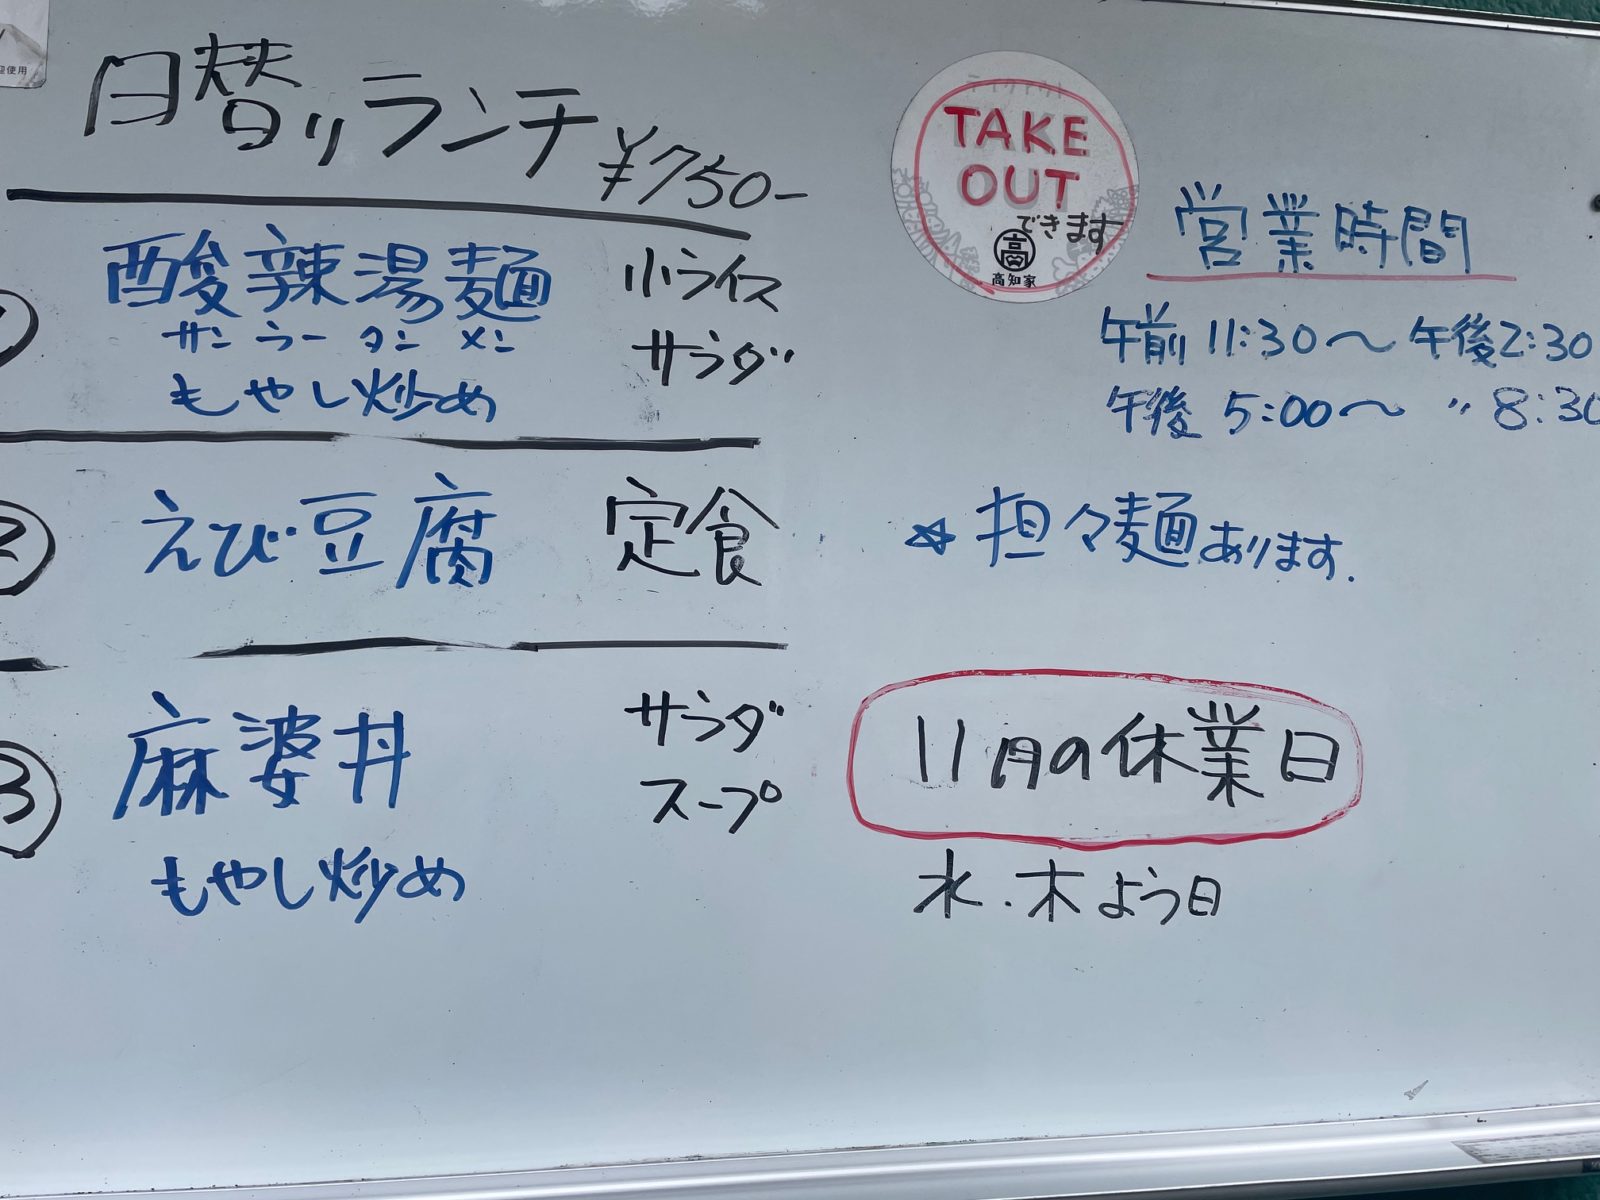 日替りランチ ¥750-
① 酸辣湯麺 小ライス
サンラータンメン サラダ
もやし炒め
② えび豆腐 定食
③ 麻婆丼 サラダ
スープ
もやし炒め
TAKE
OUT
できます
高
高知家
営業時間
午前 11:30〜午後2:30
午後 5:00〜 〃 8:30
☆担々麺あります.
11月の休業日
水・木よう日